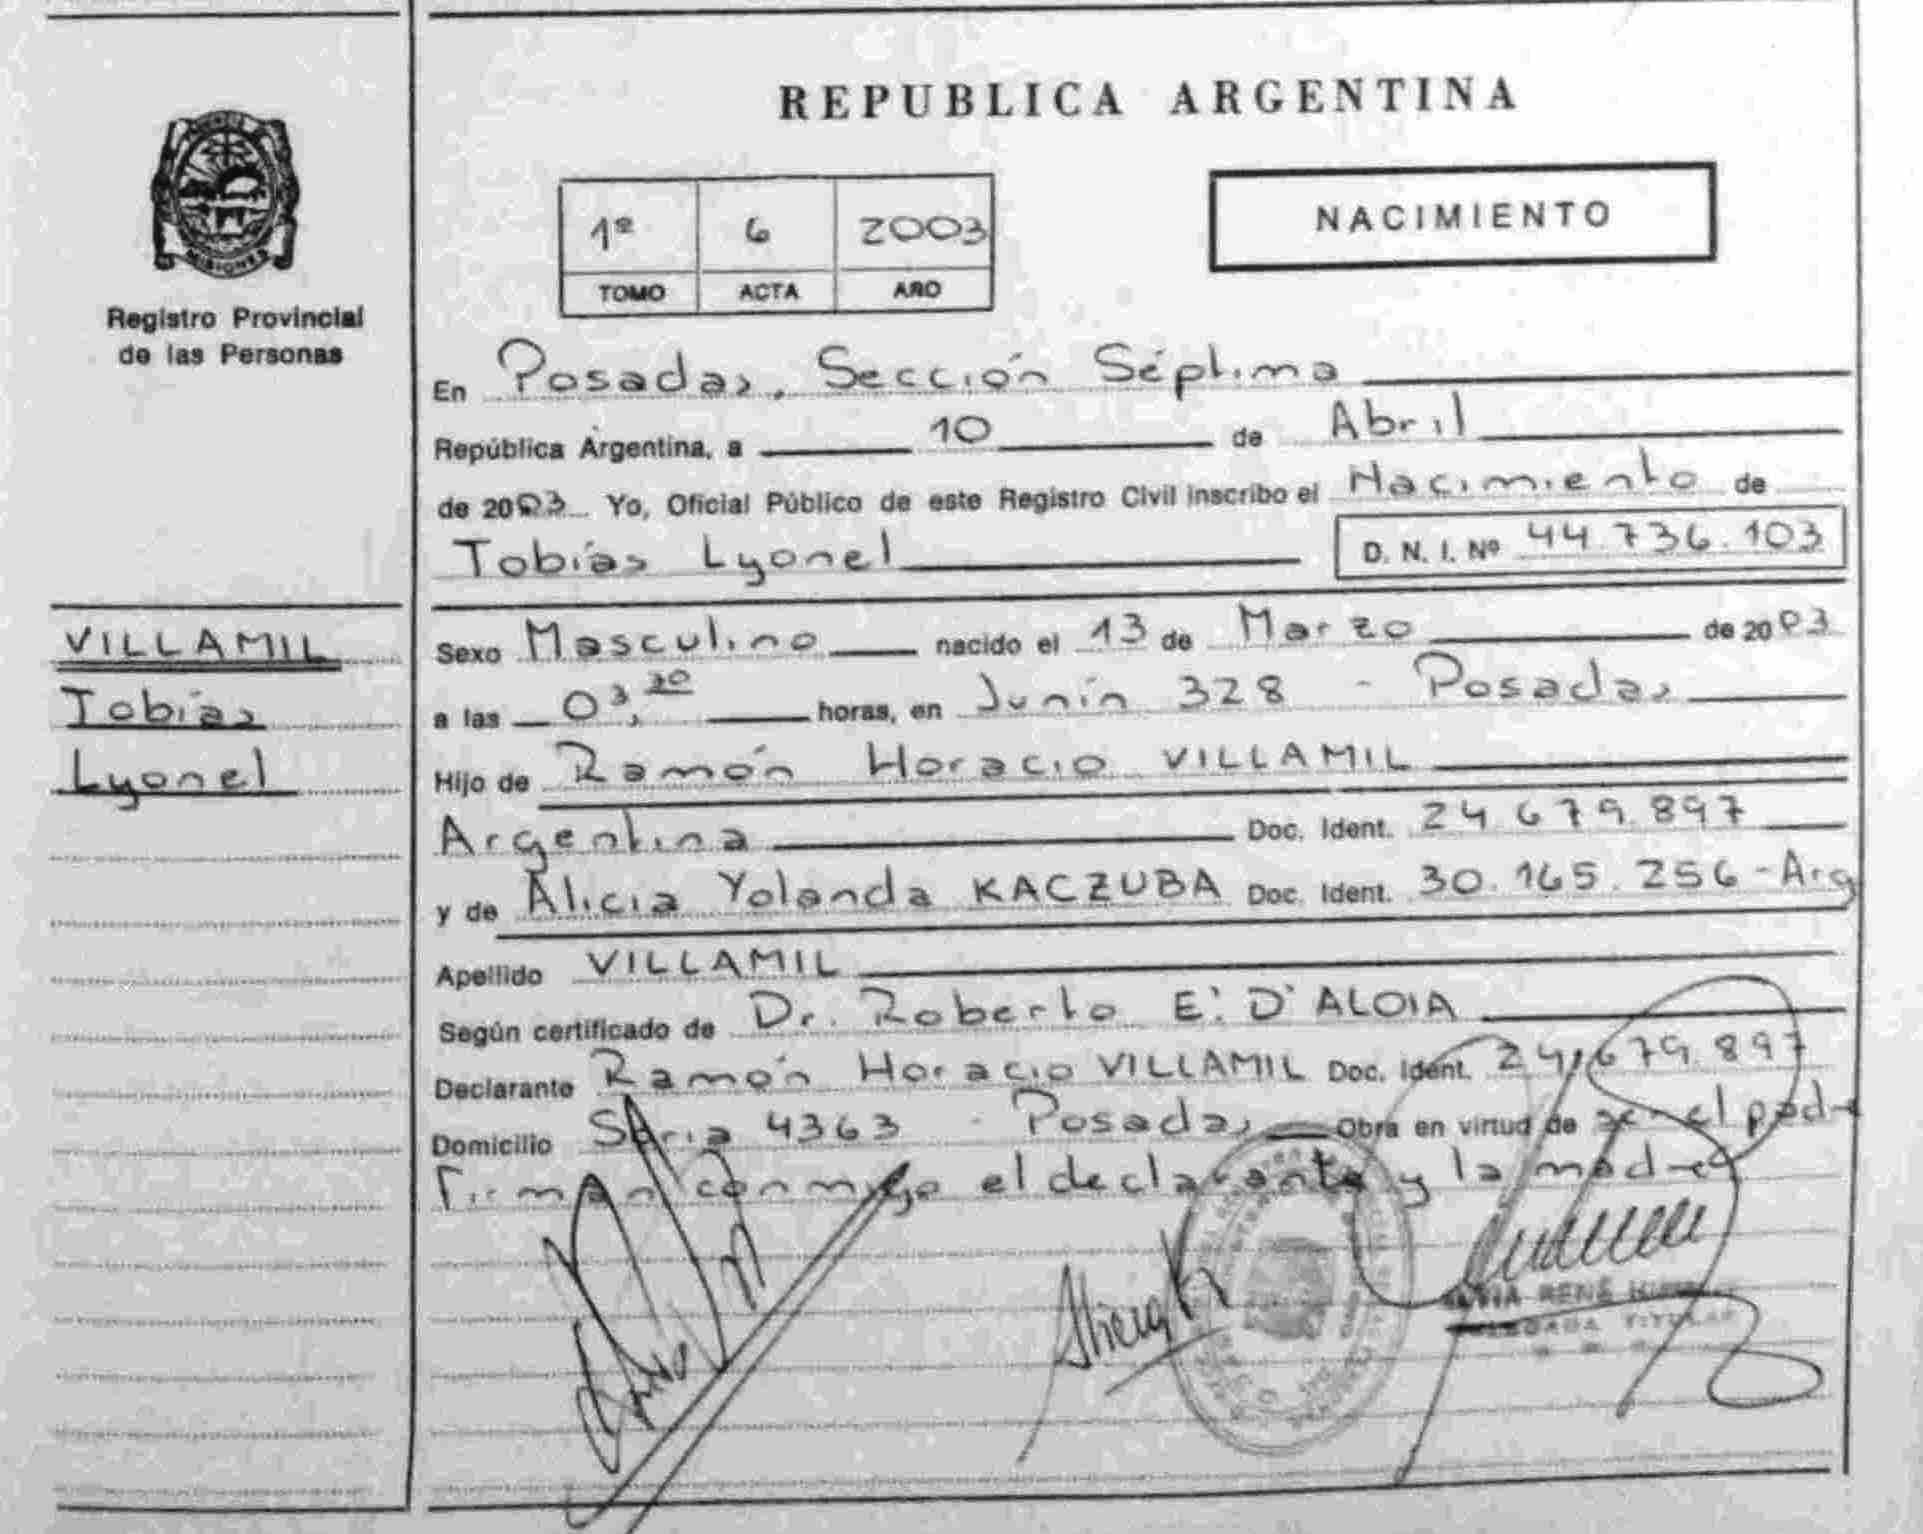 REPUBLICA ARGENTINA
NACIMIENTO
1º 6 2003
TOMO ACTA AÑO
MISIONES
Registro Provincial
de las Personas
En Posadas, Sección Séptima
República Argentina, a 10 de Abril
de 2003 Yo, Oficial Público de este Registro Civil inscribo el Nacimiento de
Tobías Lyonel D. N. I. Nº 44.736.103
VILLAMIL
Tobías
Lyonel
Sexo Masculino nacido el 13 de Marzo de 2003
a las 03,30 horas, en Junín 328 - Posadas
Hijo de Ramón Horacio VILLAMIL
Argentina Doc. Ident. 24.679.897
y de Alicia Yolanda KACZUBA Doc. Ident. 30.165.256-Arg
Apellido VILLAMIL
Según certificado de Dr. Roberto E. D'ALOIA
Declarante Ramón Horacio VILLAMIL Doc. Ident. 24.679.897
Domicilio Soria 4363 - Posadas Obra en virtud de ser el padre
Firman conmigo el declarante y la madre
RENÉ
TITULAR